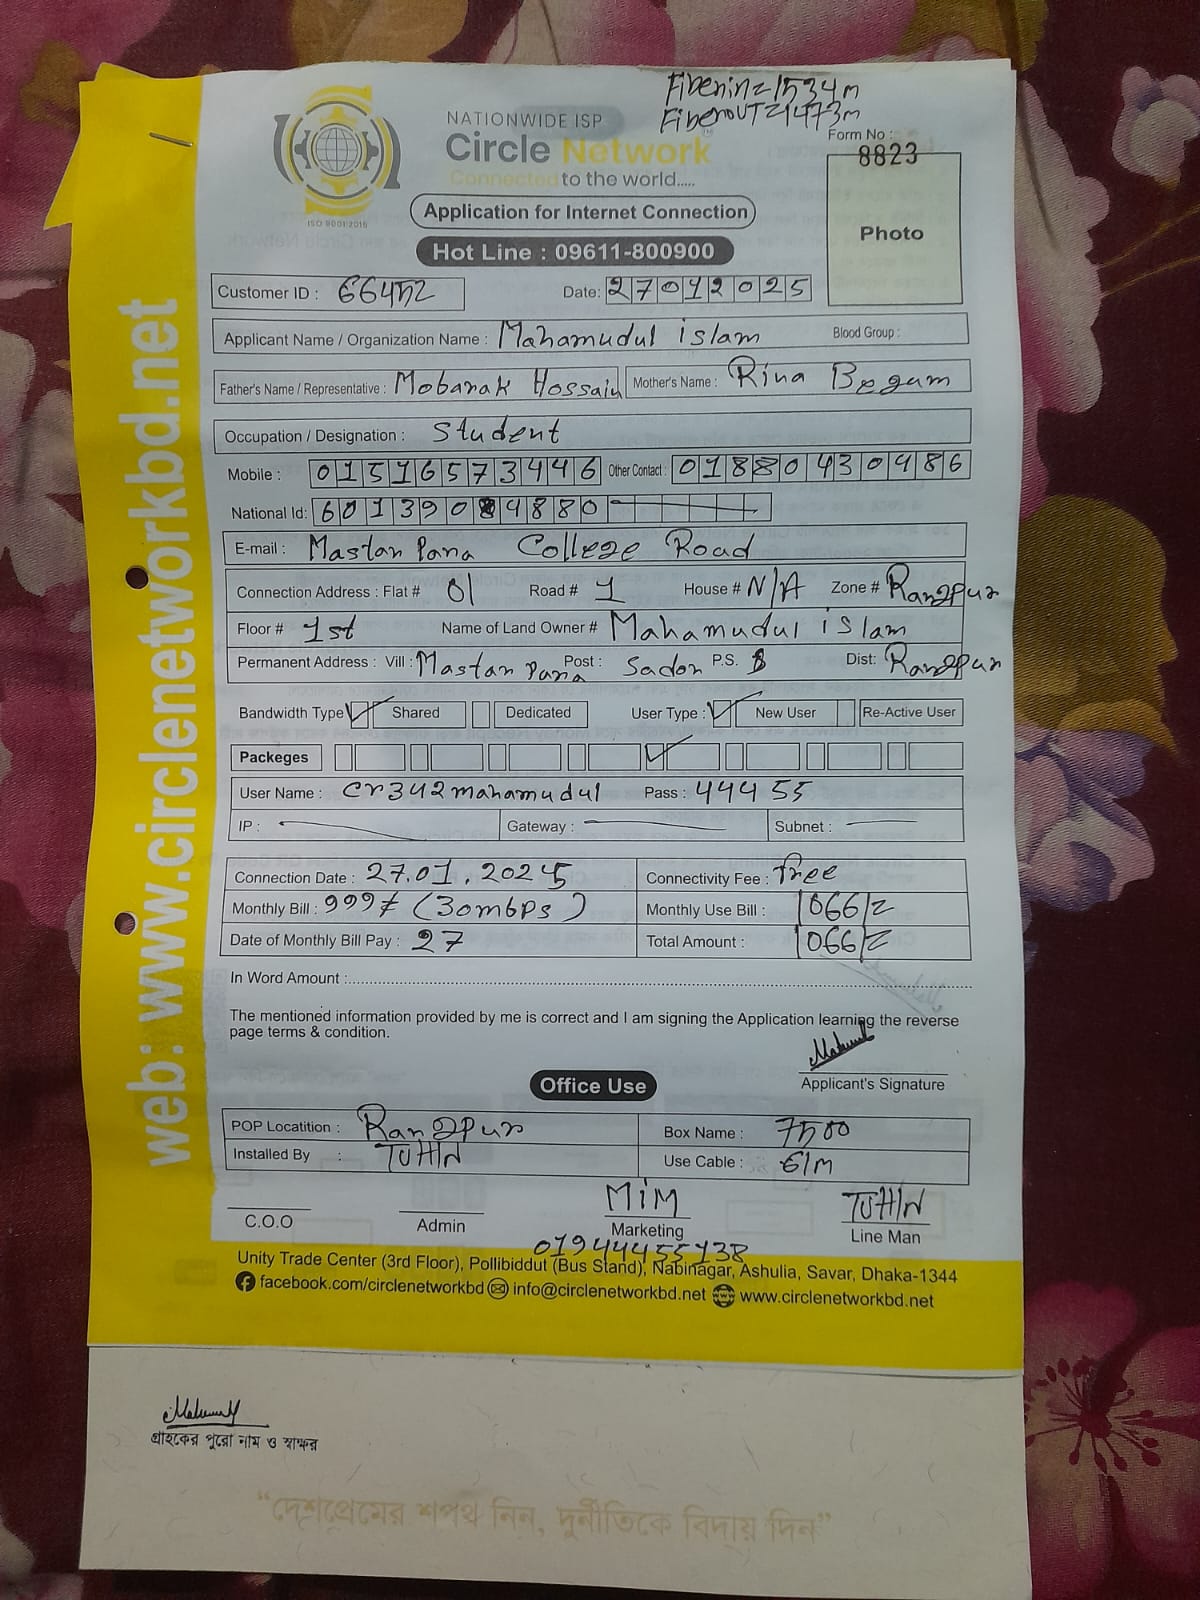 Fiberin=1534m
FiberouT=1473m
NATIONWIDE ISP
Circle Network
Connected to the world.....
ISO 9001:2015
Form No :
8823
Photo
Application for Internet Connection
Hot Line : 09611-800900
Customer ID : 66452
Date: 27012025
Applicant Name / Organization Name : Mahamudul islam Blood Group :
Father's Name / Representative : Mobarak Hossain Mother's Name : Rina Begum
Occupation / Designation : Student
Mobile : 01516573446 Other Contact : 01880430986
National Id: 6013904880
E-mail : Mastan Para College Road
Connection Address : Flat # 01 Road # 1 House # N/A Zone # Rangpur
Floor # 1st Name of Land Owner # Mahamudul islam
Permanent Address : Vill : Mastan Para Post : Sador P.S. Dist: Rangpur
Bandwidth Type Shared Dedicated User Type : New User Re-Active User
Packeges
User Name : cr342mahamudul Pass : 44455
IP : Gateway : Subnet :
Connection Date : 27.01.2025 Connectivity Fee : free
Monthly Bill : 999/= (30mbps) Monthly Use Bill : 1066/=
Date of Monthly Bill Pay : 27 Total Amount : 1066/=
In Word Amount :
The mentioned information provided by me is correct and I am signing the Application learning the reverse
page terms & condition.
Applicant's Signature
Office Use
POP Locatition : Rangpur Box Name : 7500
Installed By : TUHIN Use Cable : 61m
MiM TUHIN
C.O.O Admin Marketing Line Man
01944455138
Unity Trade Center (3rd Floor), Pollibiddut (Bus Stand), Nabinagar, Ashulia, Savar, Dhaka-1344
facebook.com/circlenetworkbd info@circlenetworkbd.net www.circlenetworkbd.net
web: www.circlenetworkbd.net
গ্রাহকের পুরো নাম ও স্বাক্ষর
“দেশপ্রেমের শপথ নিন, দুর্নীতিকে বিদায় দিন”